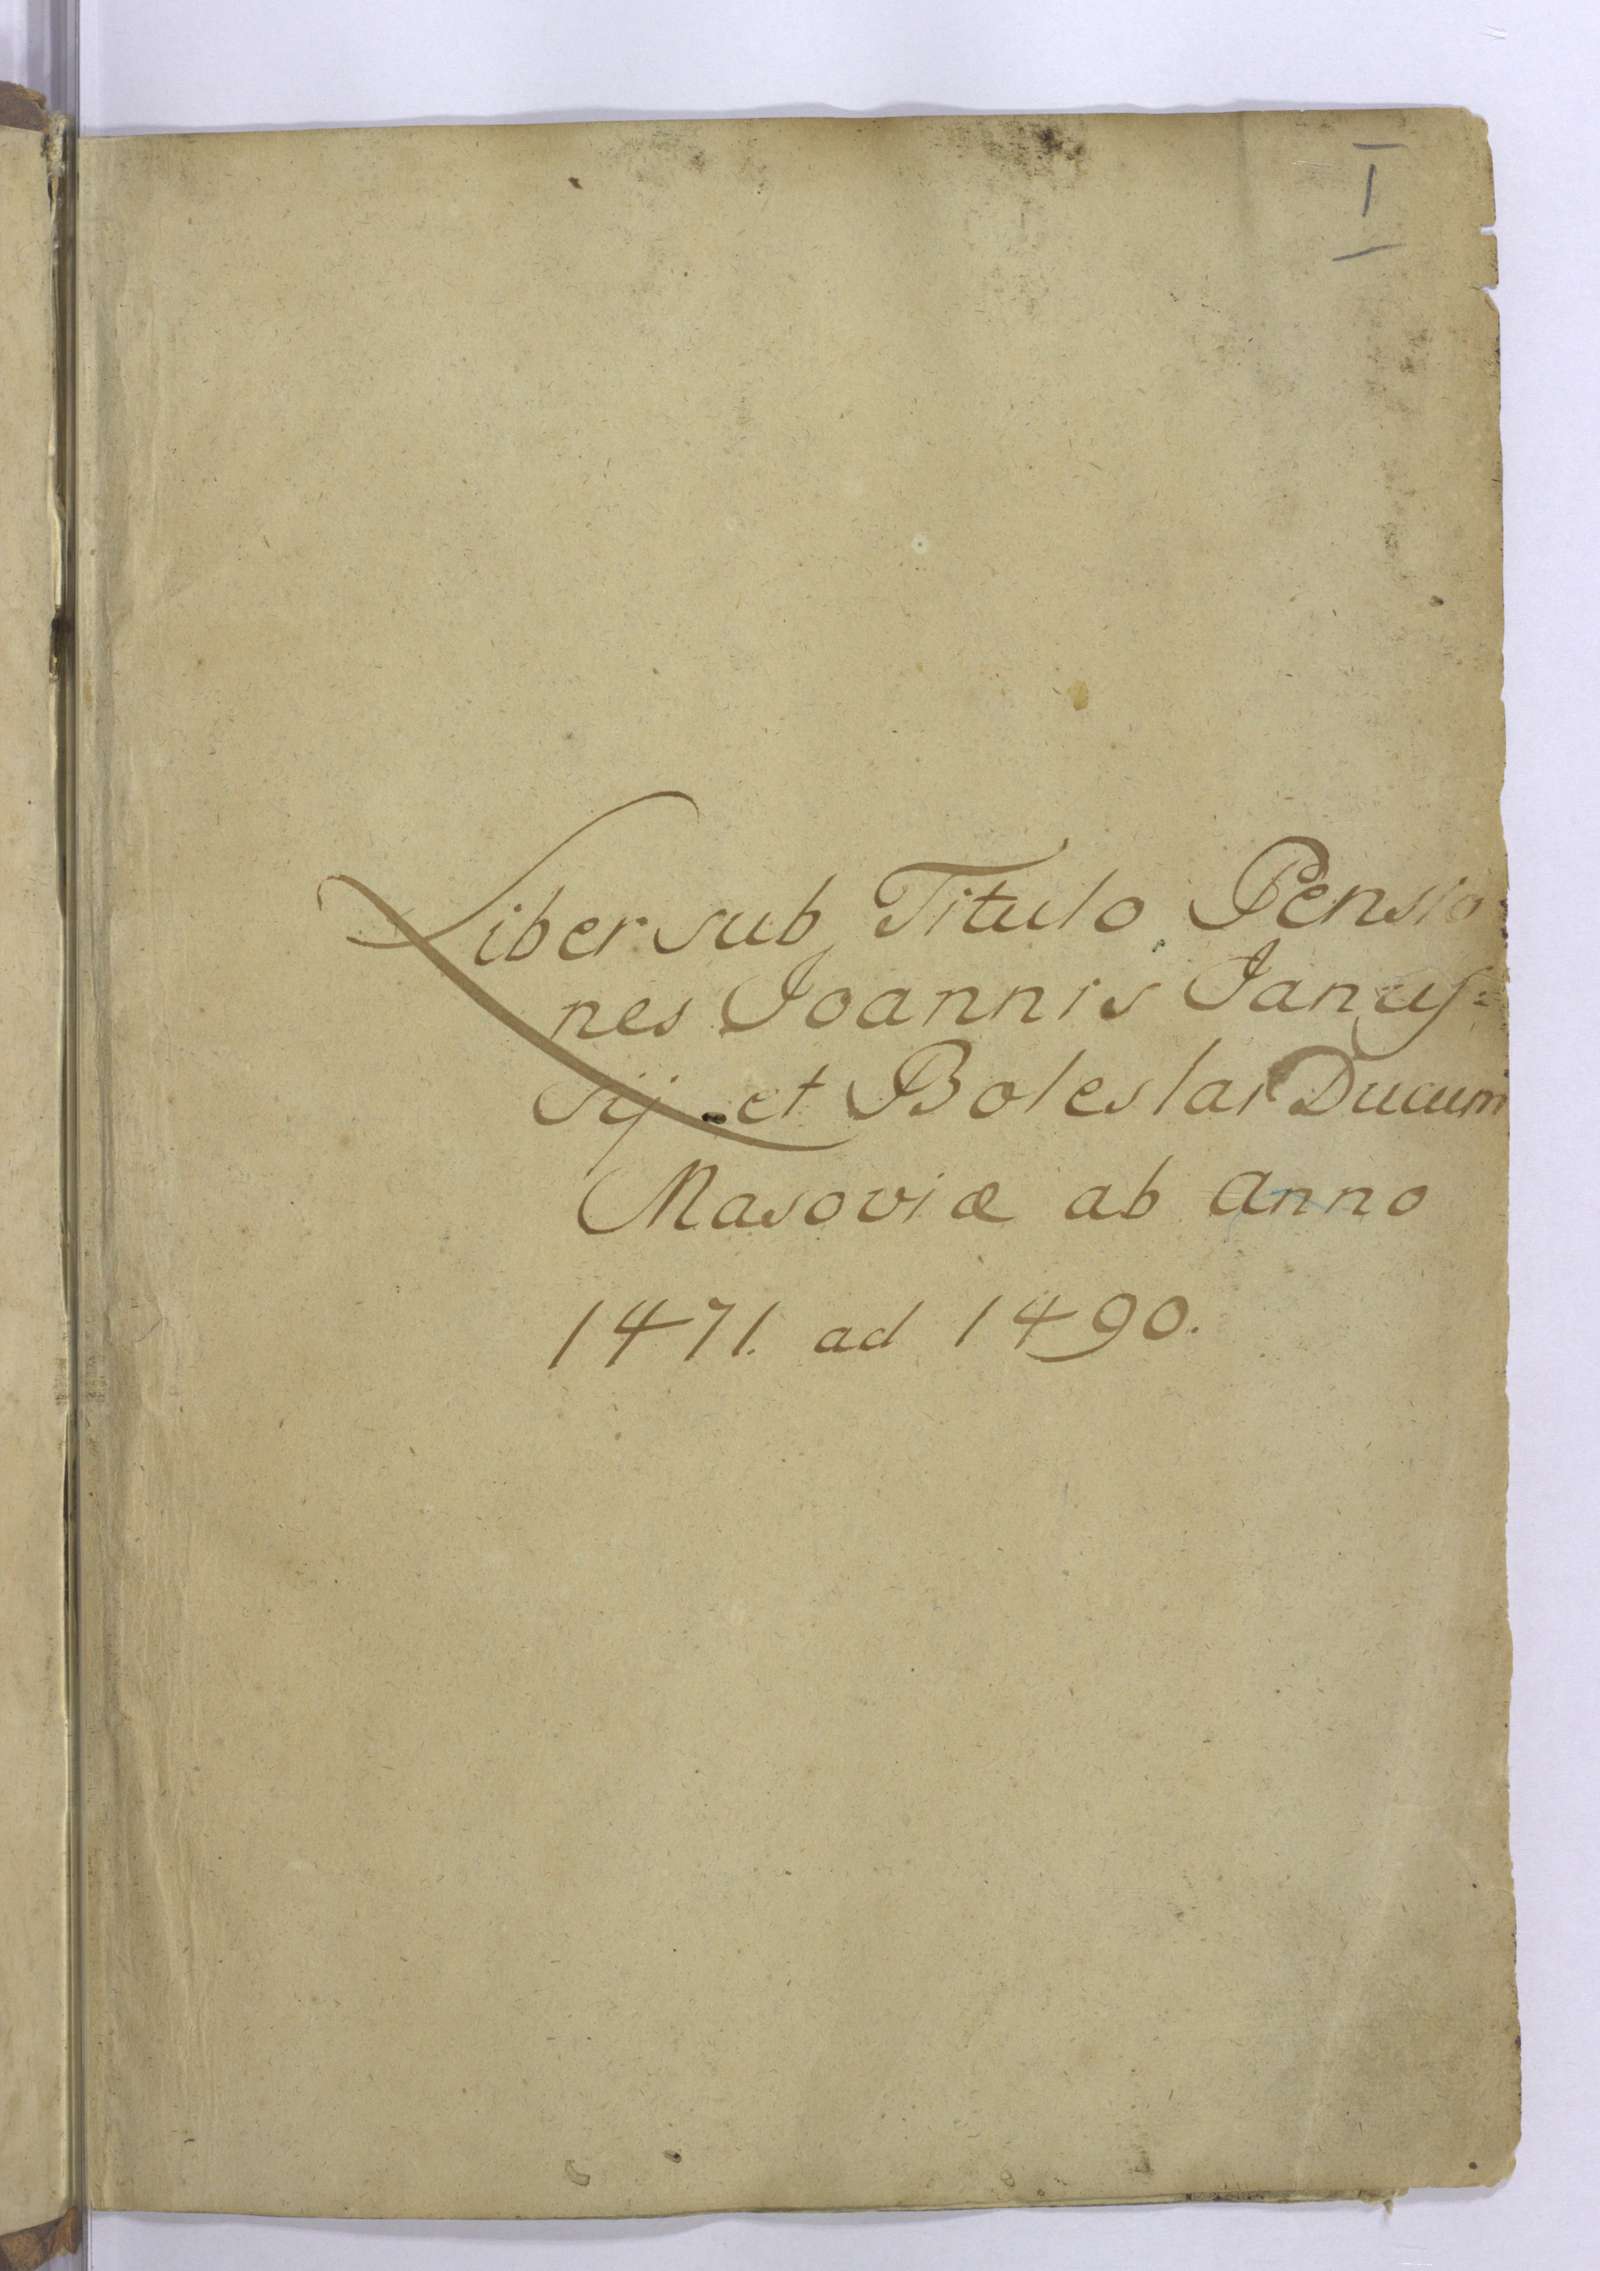 I
Liber sub Titulo Pensio=
nes Joannis Janus=
sij et Boleslai Ducum
Masoviæ ab Anno
1471. ad 1490.